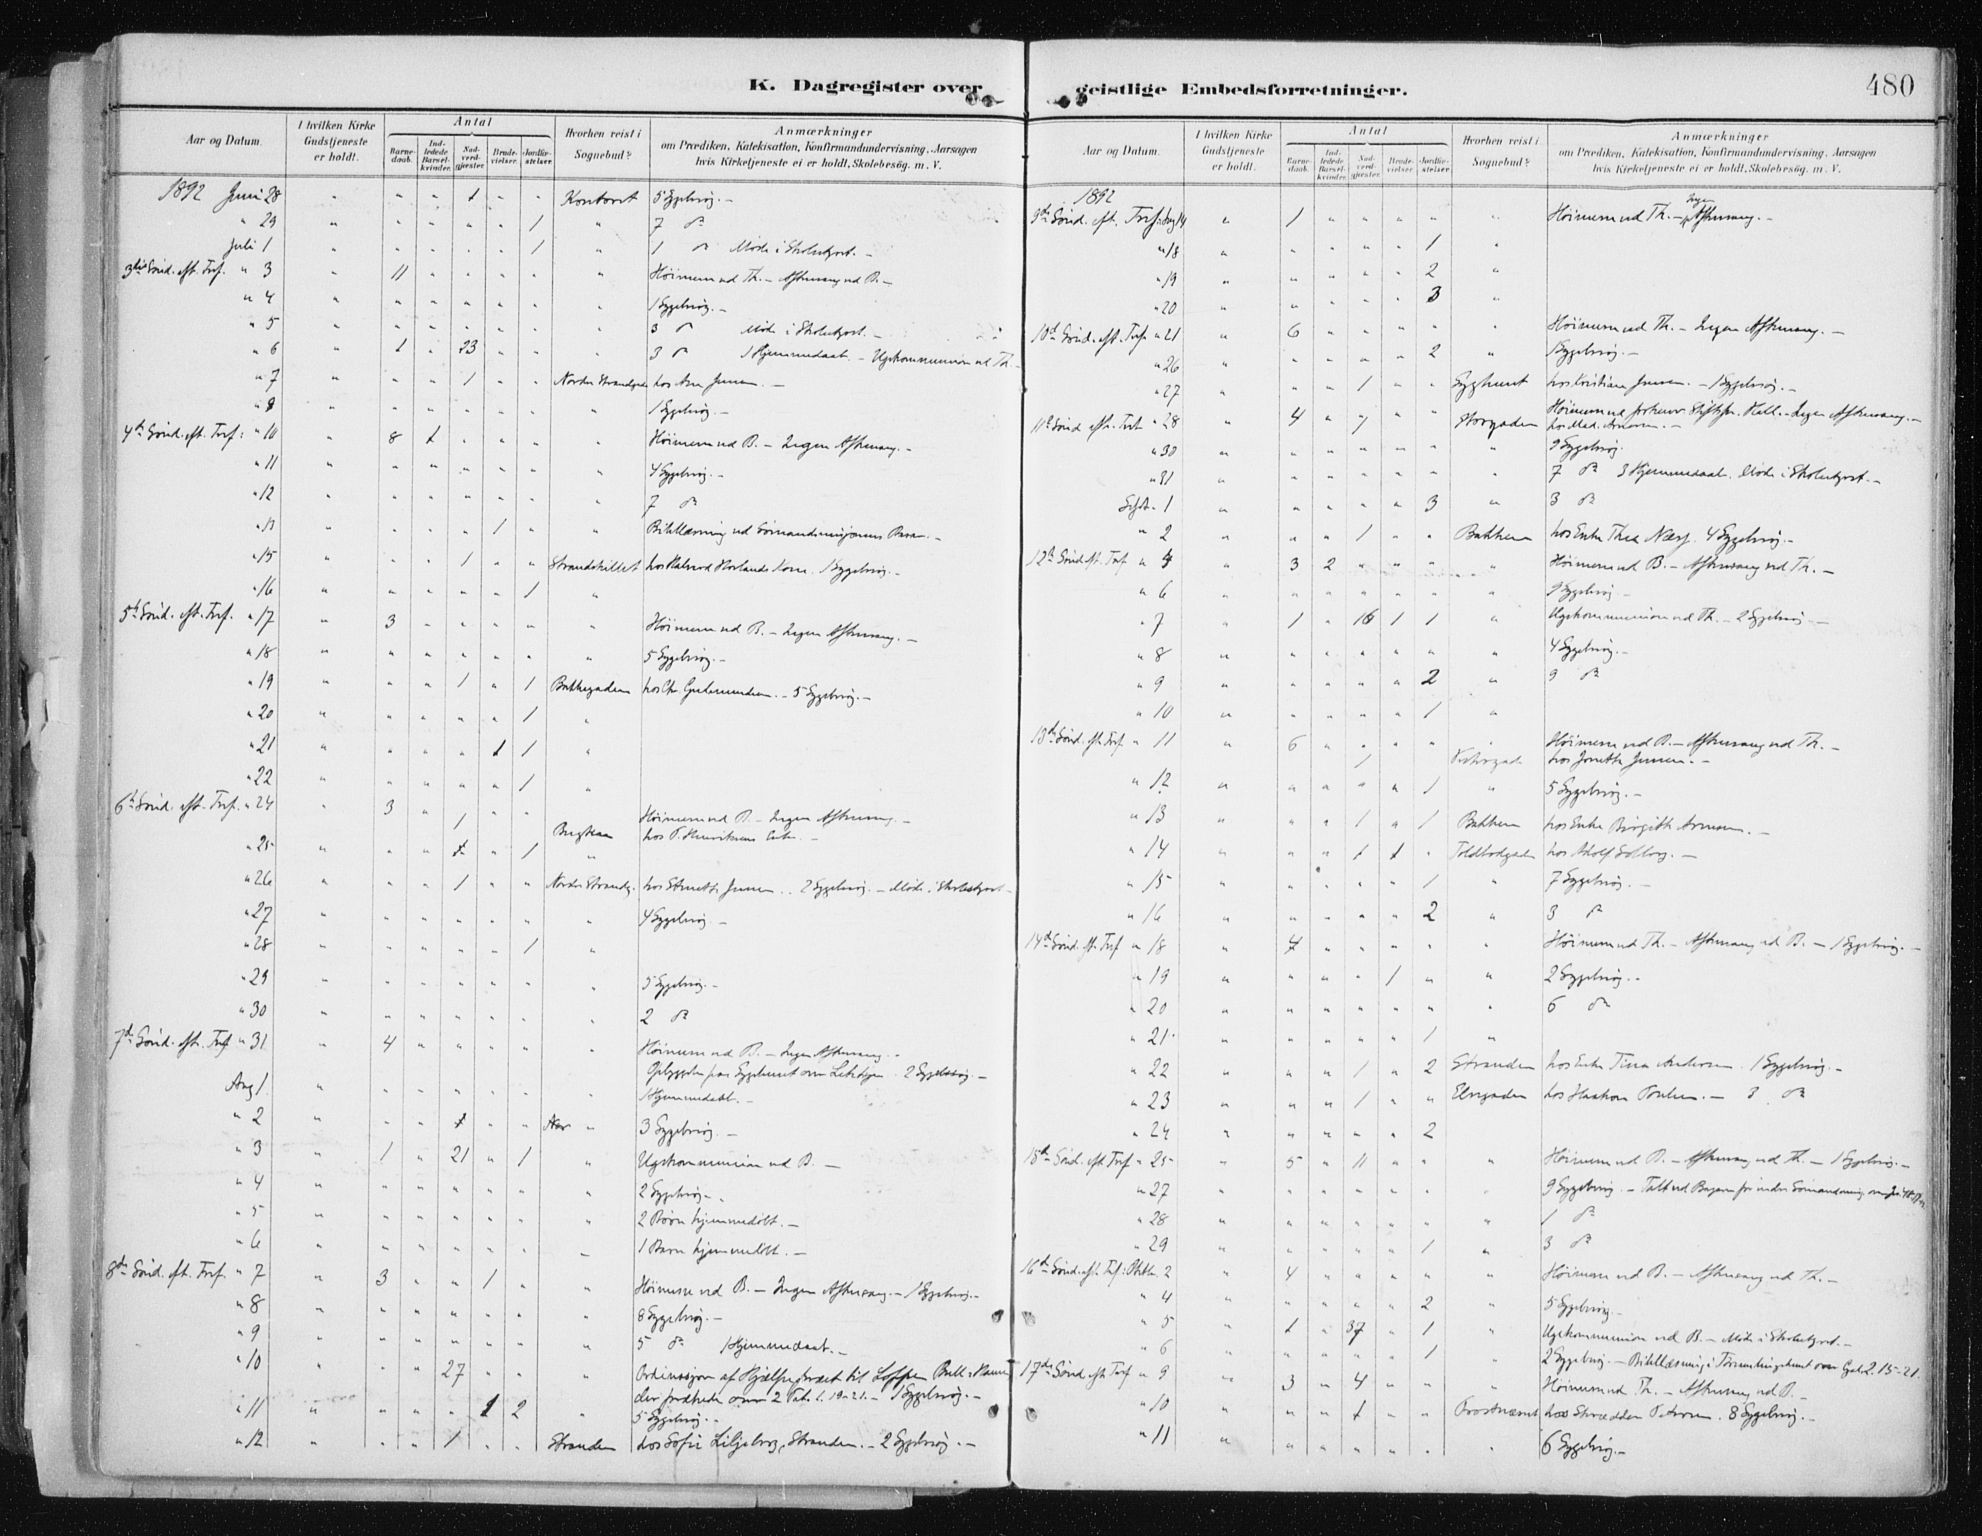 K. Dagregister over geistlige Embedsforretninger.
480
Aar og Datum.
I hvilken Kirke Gudstjeneste er holdt.
Antal
Barnedaab.
Indledede Barselkvinder.
Nadverdgjester.
Brudevielser.
Jordfæstelser.
Hvorhen reist i Sognebud?
Anmærkninger
om Prædiken, Katekisation, Konfirmandundervisning, Aarsagen
hvis Kirketjeneste ei er holdt, Skolebesøg. m. V.
1892 Juni 28 " " " 1 " " Kontoret 5 Sygebesøg. –
" 29 " " " " " 1 " 7 do
Juli 1 " " " " " 1 " 1 do Møde i Skolestyret. –
3die Sønd. eft. Tref. " 3 " 11 " " " " " Høimesse ved Th. – Aftensang ved B. –
" 4 " " " " " " " 1 Sygebesøg. –
" 5 " " " " " " " 3 do Møde i Skolestyret. –
" 6 " 1 " 23 " " " 3 do 1 Hjemmedaab – Ugekommunion ved Th. –
" 7 " " " 1 " " Nordre Strandgade hos Jensen. –
" 8 " " " " " " " 1 Sygebesøg. –
4de Sønd. eft. Tref: " 10 " 8 1 " " " " Høimesse ved B. – Ingen Aftensang. –
" 11 " " " " " " " 4 Sygebesøg. –
" 12 " 7 do
" 13 " " " " 1 " " Bibellæsning ved Sømandsmissionens
" 15 " " " 1 " " Strandskillet hos 1 Sygebesøg. –
" 16 " " " " " 1 "
5te Sønd. eft. Tref. " 17 " 3 " " " " " Høimesse ved B. – Ingen Aftensang. –
" 18 " " " " " " " 5 Sygebesøg. –
" 19 " " " 1 " 1 Bakkegaden hos Chr. Gudmundsen. – 5 Sygebesøg. –
" 20 " " " " " 1 "
" 21 " " " " 1 1 "
" 22 " " " " " 1
6te Sønd. eft. Tref. " 24 " 3 " 1 " " Høimesse ved B. – Ingen Aftensang. –
hos P. Henriksens Enke. –
" 25 " " " 1 " 1 "
" 26 " " " 1 " " Nordre Strandg. hos Jensen. 2 Sygebesøg. – Møde i Skolestyret –
" 27 " " " " " " " 4 Sygebesøg –
" 28 " " " " " 1 "
" 29 " " " " " " " 5 Sygebesøg. –
" 30 " " " " " " " 2 do
7de Sønd. eft. Tref " 31 " 4 " " " " " Høimesse ved B. – Ingen Aftensang. –
Aug 1. 2 Sygebesøg –
1 Hjemmedøbt. –
" 2 " " " 1 " " 3 Sygebesøg. –
" 3 " 1 " 21 " 1 " Ugekommunion ved B. –
" 4 " " " " " " " 2 Sygebesøg –
" 5 " " " " " " " 2 Børn hjemmedøbt. –
" 6 " " " " " " " 1 Barn hjemmedøbt. –
8de Sønd. eft. Tref. " 7 " 3 " " 1 " " Høimesse ved B. – Ingen Aftensang. – 1 Sygebesøg. –
" 8 " " " " " " " 8 Sygebesøg. –
" 9 " " " " " " " 5 do 1 Hjemmedaab. –
" 10 " " " 27 " " " Ordination af Hjælpepræst til Loppen Bull
der prædikede over 2 – 1 Sygebesøg. –
" 11 " " " " 1 2 " 5 Sygebesøg. –
" 12 " " " 1 " " Stranden hos Sofie Liljeborg, Stranden. – 2 Sygebesøg. –
Aar og Datum.
I hvilken Kirke Gudstjeneste er holdt.
Antal
Barnedaab.
Indledede Barselkvinder.
Nadverdgjester.
Brudevielser.
Jordfæstelser.
Hvorhen reist i Sognebud?
Anmærkninger
om Prædiken, Katekisation, Konfirmandundervisning, Aarsagen
hvis Kirketjeneste ei er holdt, Skolebesøg. m. V.
1892
9de Sønd. eft. Tref: Aug 14 " 1 " " " " " Høimesse ved Th. – Ingen Aftensang. –
" 18 " " " " " 1 "
" 19 " " " " " 2 "
" 20 " " " " " 3 "
10de Sønd. eft. Tref " 21 " 6 " " " " " Høimesse ved Th. – Ingen Aftensang. –
" 26 " " " " " 2 " 1 Sygebesøg. –
" 27 " " " 1 " " Sygehuset hos Kristian Jensen. – 1 Sygebesøg. –
11te Sønd. eft. Tref " 28 " 4 " " " Storgaden Høimesse ved – Ingen Aftensang. –
" 30 " " " " " " " 9 Sygebesøg
" 31 " " " " " " " 7 do 3 Hjemmedaab. Møde i Skolestyret. –
Septbr. 1 " " " " " 3 " 3 do
" 2 " " " 1 " " Bakken hos Enke Thea Næss. 4 Sygebesøg. –
12te Sønd. eft. Tref " 4 " 3 2 " " " " Høimesse ved B. – Aftensang ved Th. –
" 6 " " " " " " " 9 Sygebesøg. –
" 7 " 1 " 16 1 1 " Ugekommunion ved Th. – 2 Sygebesøg –
" 8 " " " " " " " 4 Sygebesøg. –
" 9 " " " " " 2 " 9 do
" 10 " " " " " 1 "
13de Sønd. eft. Tref. " 11 " 6 " 1 " " Høimesse ved B. – Aftensang ved Th. –
hos Jensen. –
" 12 " " " " " 1 " 5 Sygebesøg. –
" 13 " " " 1 " 1 Bakken hos Enke Birgitte –
" 14 " " " 1 1 " Toldbodgaden hos Adolf –
" 15 " " " " " 1 " 7 Sygebesøg. –
" 16 " " " " " 2 " 3 do
14de Sønd. eft. Tref " 18 " 7 " " " " " Høimesse ved Th. – Aftensang ved B. – 1 Sygebesøg. –
" 19 " " " " 1 " " 2 Sygebesøg. –
" 20 " " " " " " " 6 do
" 21 " " " " " 1 "
" 22 " " " 1 " 2 Stranden hos Enke Tina Andersen. 1 Sygebesøg. –
" 23 " " " 1 " " Elvegaden hos Haakon Poulsen. – 3 do
" 24 " " " " " 2
15de Sønd. eft. Tref " 25 " 5 " 11 " " " Høimesse ved B. – Aftensang ved Th. – 1 Sygebesøg. –
" 27 " " " " " " " 9 Sygebesøg. – Talt ved Bazaren for indre Sømandsmission
" 28 " " " " " " " 1 do
" 29 " " " " " 1 " 3 do
16de Sønd. eft. Tref: Oktbr. 2 " 4 " " " " " Høimesse ved B. – Aftensang ved Th. –
" 4 " " " " " 2 " 5 Sygebesøg –
" 5 " 1 " 37 " 1 " Ugekommunion ved B. – Møde i Skolestyret. –
" 6 " " " " " 1 " 2 Sygebesøg. – Bibellæsning i over Gal. 2. 15–21.
17de Sønd. eft. Tref " 9 " 3 " 4 " " " Høimesse ved Th. – Aftensang ved B. –
" 10 " " " 1 " " hos Skrædder 8 Sygebesøg. –
" 11 " " " " " " " 6 Sygebesøg. –